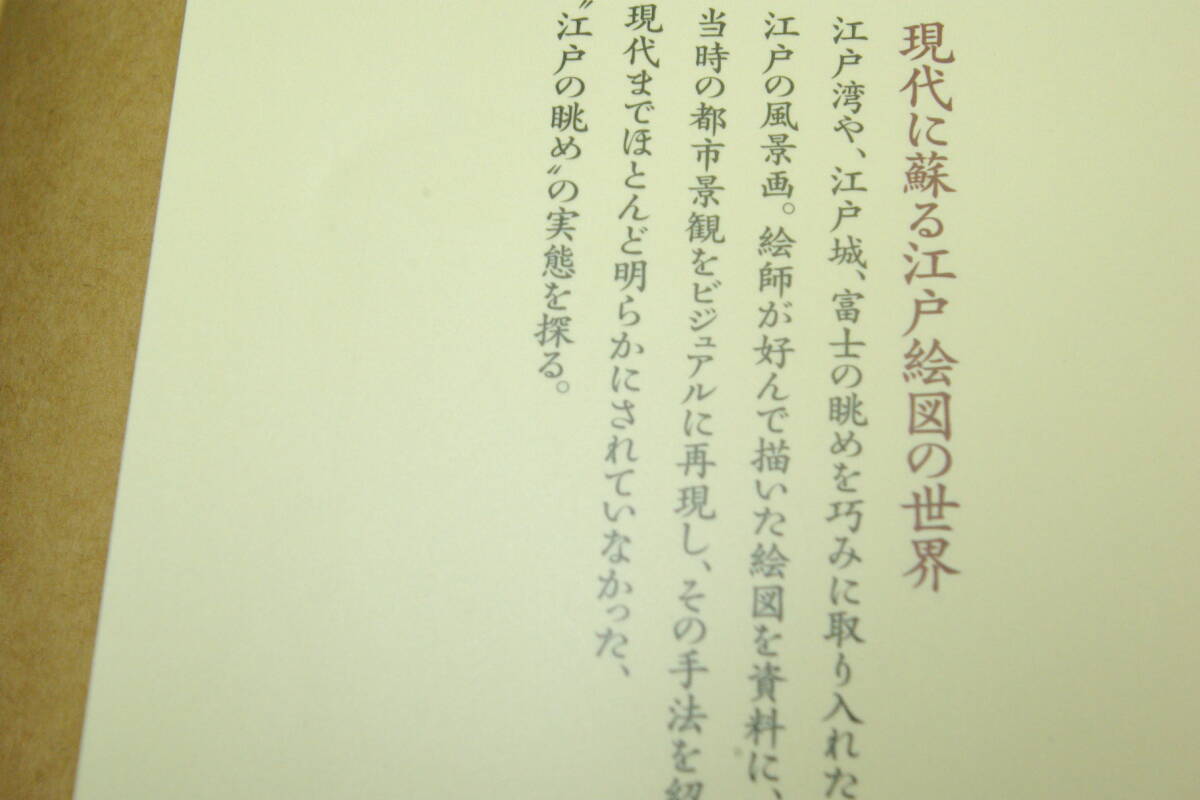 現代に蘇る江戸絵図の世界
江戸湾や、江戸城、富士の眺めを巧みに取り入れた
江戸の風景画。絵師が好んで描いた絵図を資料に、
当時の都市景観をビジュアルに再現し、その手法を紹
現代までほとんど明らかにされていなかった、
〝江戸の眺め〟の実態を探る。